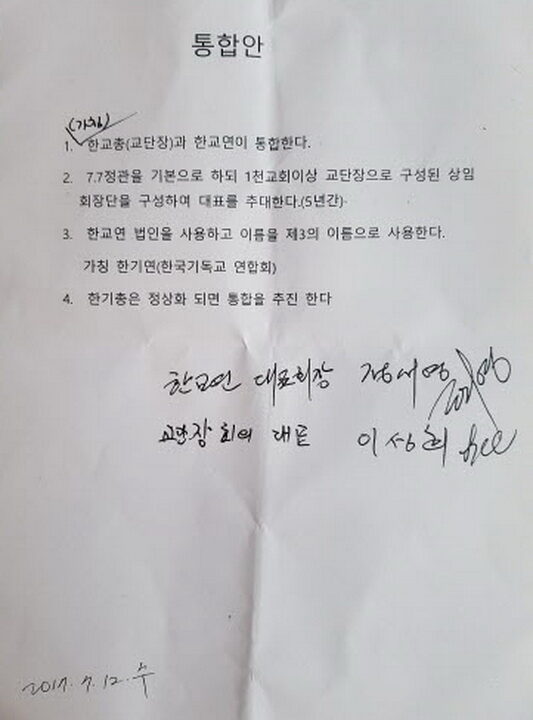 통합안
(가칭)
1. 한교총(교단장)과 한교연이 통합한다.
2. 7.7정관을 기본으로 하되 1천교회이상 교단장으로 구성된 상임
회장단을 구성하여 대표를 추대한다.(5년간)
3. 한교연 법인을 사용하고 이름을 제3의 이름으로 사용한다.
가칭 한기연(한국기독교 연합회)
4. 한기총은 정상화 되면 통합을 추진 한다
한교연 대표회장 정서영
교단장 회의 대표 이성희 Lee
2017. 7. 12. 수